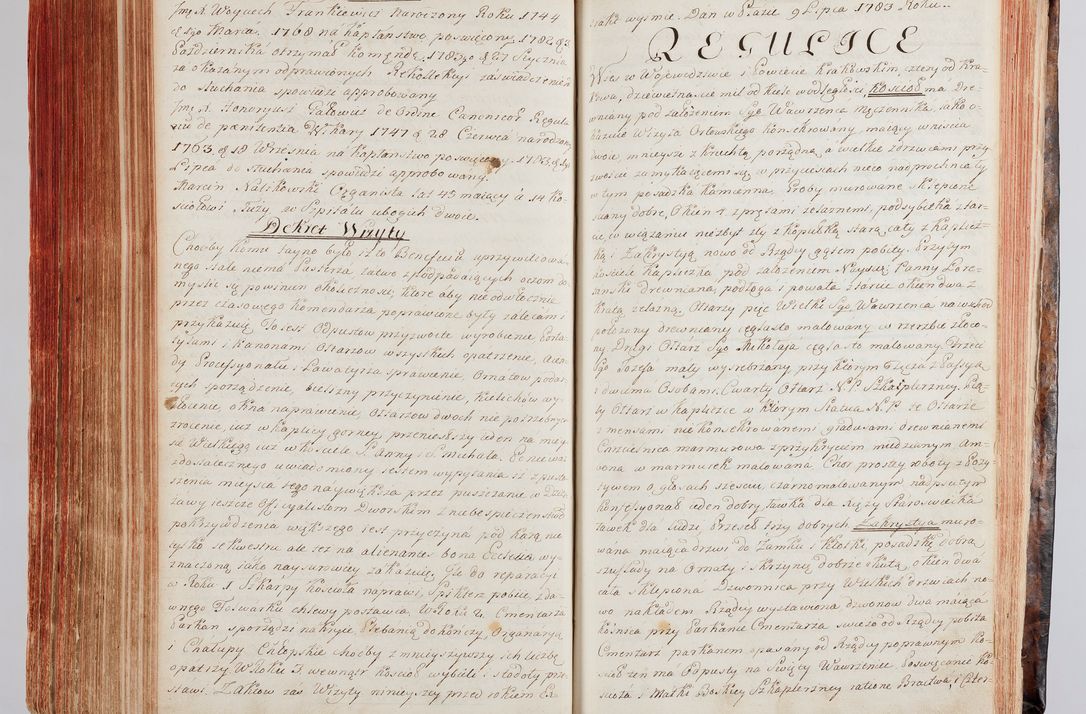 Jmć X. Woyciech Frankiewicz Narodzony Roku 1744
1768 na Kapłanstwo poswięcony 1782
Pazdziernika otrzymał Komendę, 1783go d 27 Stycznia
za okazanym odprawionych Rekollekcyi zaswiadczeniem
do słuchania spowiedzi approbowany
Jmć X. Honoryusz Pałowicz de Ordine Canonicor Regula
riu de pœnitentia Wikary 1747 d 28 Czerwca narodzony
1763 d 18 Wrzesnia na Kapłanstwo poswięcony
Lipca do słuchania spowiedzi approbowany.
Marcin Nalikowski Organista lat 45 maiący a 14 Ko-
sciołowi służy, w Szpitalu ubogich dwoie.
Dekret Wizyty
Choćby komu tayno było iż to Beneficiū uprzywileiowa-
nego stale niema Pasterza łatwo z podpadaiących oczom do
myslić się powinien okolicznosci, ktore aby nieodwłocznie
przez czasowego Komendarza poprawione były zalecam i
przykazuię. To iest Odpustow przyzwoite wyrobienie, Porta
tylami i Kanonami Ołtarzow wszystkich opatrzenie, Agen
dy Processyonału i Lawaterza sprawienie, Ornatow podar
tych sporządzenie, bielizny przyczynienie, Kielichow wy-
złocenie, okna naprawienie, Ołtarzow dwoch nie potrzebnych
zrocenie, iuz w kaplicy gorney przenieszszy ieden na miey
sce Wielkiego iuz w kosciele S. Anny i S. Michała. Ponieważ
zdostatecznego uwiadomiony iestem wypytania iż spusto
szenia mieysca tego naywiększa przez puszczanie w Dzier
żawy ieszcze Officyalistom Dworskim z niebespieczenstwem
pokrzywdzenia większego iest przyczyna pod karą nie
tylko sekwestru ale też na alienantes bona Ecclesiæ wy-
znaczoną iako naysurowiey zakazuię, Do do reparacyi
w Roku 1 Szkarpy Kościoła naprawi, Spiklerz pobiie zda-
wnego Folwarku chlewy postawi, W Roku 2. Cmentarza
Parkan sporządzi nakryie Plebanią dokończy, Organaryą
i Chałupy Chłopskie choćby zmnieyszywszy ich liczbę
opatrzy W Roku 3. wewnątrz Kościoł wybieli i stodoły prze-
stawi. Zakłow zas Wizyty ninieyszey przed rokiem Ex
iako wyżmie. Dan w Płazie 9 Lipca 1783 Roku.
REGULICE
Wies w Woiewodztwie i Powiecie Krakowskim cztery od Kra-
kowa, dziewetnascie mil od Kielc wodległości, Kościoł ma Dre-
wniany pod założeniem Sgo Wawrzenca męczennika. iako o-
kazuie Wizyta Osłowskiego Konsekrowany maiący wniscia
dwoie, mnieysze z Kruchtą porządną a wielkie zdrzwiami przy
zweicie zamykaiącemi się w przyciesiach nieco nadpruchniały
w tym posadzka Kamienna, Groby murowane sklepione
sciany dobre, Okien 4 z prętami żelaznemi, podsybitka star-
sza, w wiązanie niezbyt zły z kopułką starą cały z kaplicz-
ką i Zakrystyą nowo do Rządcy gątem pobity. Przytym
kościele Kapliczka pod założeniem Nayświę Panny Lore-
tanski Drewniana, podłoga i powała starcie okien dwa z
kratą żelazną. Ołtarzy pięc Wielki Sgo Wawrzenca na wschod
położony drewniany częsiasto malowany w rzezbie złoco-
ny Drugi Ołtarz Sgo Mikołaia częsiasto malowany. Trzeci
Sgo Jozefa mały wysrebrzany, przy ktorym Tęcza z Passyą
i dwiema Osobami, Czwarty Ołtarz N. P. Szkaplerzney. Pią-
ty Ołtarz w Kapliczce w ktorym Statua N. P. te Ołtarze
z mensami nie konsekrowanemi gradusami drewnianemi
Chrzcielnica marmurowa z przykryciem miedzianym Am-
bona w marmurek malowana Chor prostey roboty z Pozy-
tywem o głosach szesciu, czarnomalowanym nadpsutym
Konfesyonał ieden dobry, Ławka dla Xięży Staroswiecka
Ławek dla ludzi Przeset trzy dobrych Zakrystya muro-
wana maiąca drzwi do Zamku i kłotki, posadzkę dobrą
szuflady na Ornaty i Skrzynię dobrze okutą, okien dwa
cała Sklepiona Dzwonnica przy Wielkich drzwiach no-
wo nakładem Rządcy wystawiona dzwonow dwa maiąca
kośnica przy Parkanie Cmentarza swieżo od Rządcy pobita
Cmentarz parkanem opasany od Rządcy poprawnym Ko-
scioł ten ma Odpusty na Swięty Wawrzeniec Poswięcanie Ko-
scioła i Matki Boskiey Szkaplerzney ratione Bractwa, i Czter-